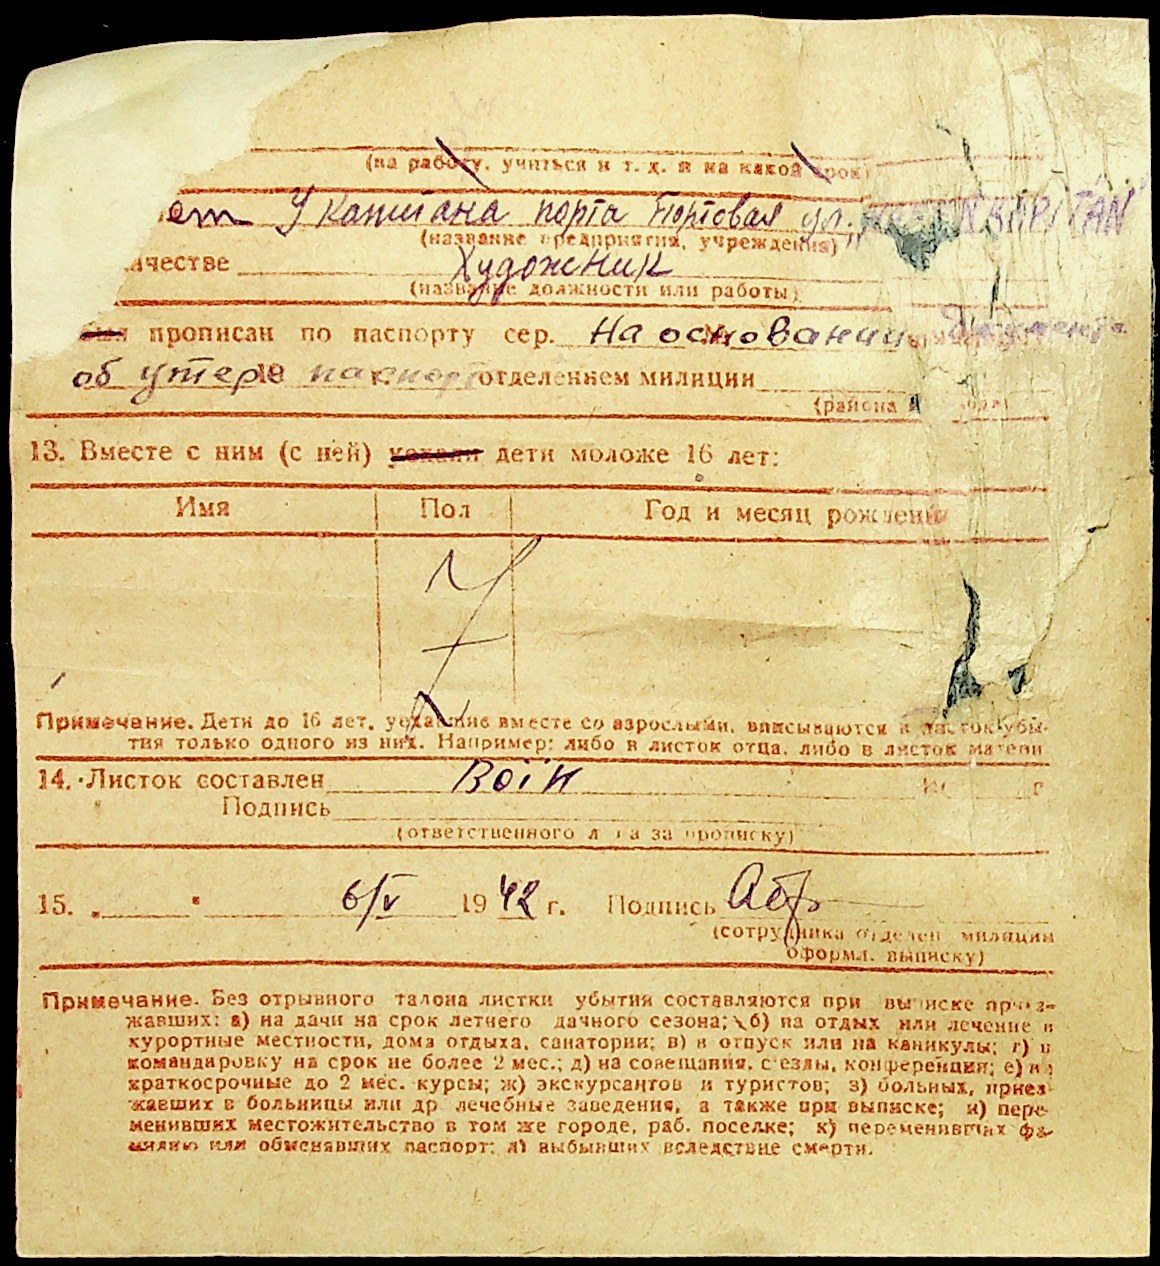 (на работу, учиться и т. д. и на какой срок)
ет У капитана порта Портовая ул. KAPITAN
(название предприятия, учреждения)
ачестве Художник
(название должности или работы)
прописан по паспорту сер. На основании документа
об утере 19 паспорта г. отделением милиции
(района
13. Вместе с ним (с ней) уехали дети моложе 16 лет:
Имя Пол Год и месяц рождения
Примечание. Дети до 16 лет, уехавшие вместе со взрослыми, вписываются в листок убы-
тия только одного из них. Например: либо в листок отца, либо в листок матери
14. Листок составлен г.
Подпись
(ответственного лица за прописку)
15. " " 6/V 1942 г. Подпись
(сотрудника отделен. милиции
оформл. выписку)
Примечание. Без отрывного талона листки убытия составляются при выписке приез-
жавших: а) на дачи на срок летнего дачного сезона; б) на отдых или лечение в
курортные местности, дома отдыха, санатории; в) в отпуск или на каникулы; г) в
командировку на срок не более 2 мес.; д) на совещания, с'езды, конференции; е) на
краткосрочные до 2 мес. курсы; ж) экскурсантов и туристов; з) больных, приез-
жавших в больницы или др лечебные заведения, а также при выписке; и) пере-
менивших местожительство в том же городе, раб. поселке; к) переменивших фа-
милию или обменявших паспорт; л) выбывших вследствие смерти.